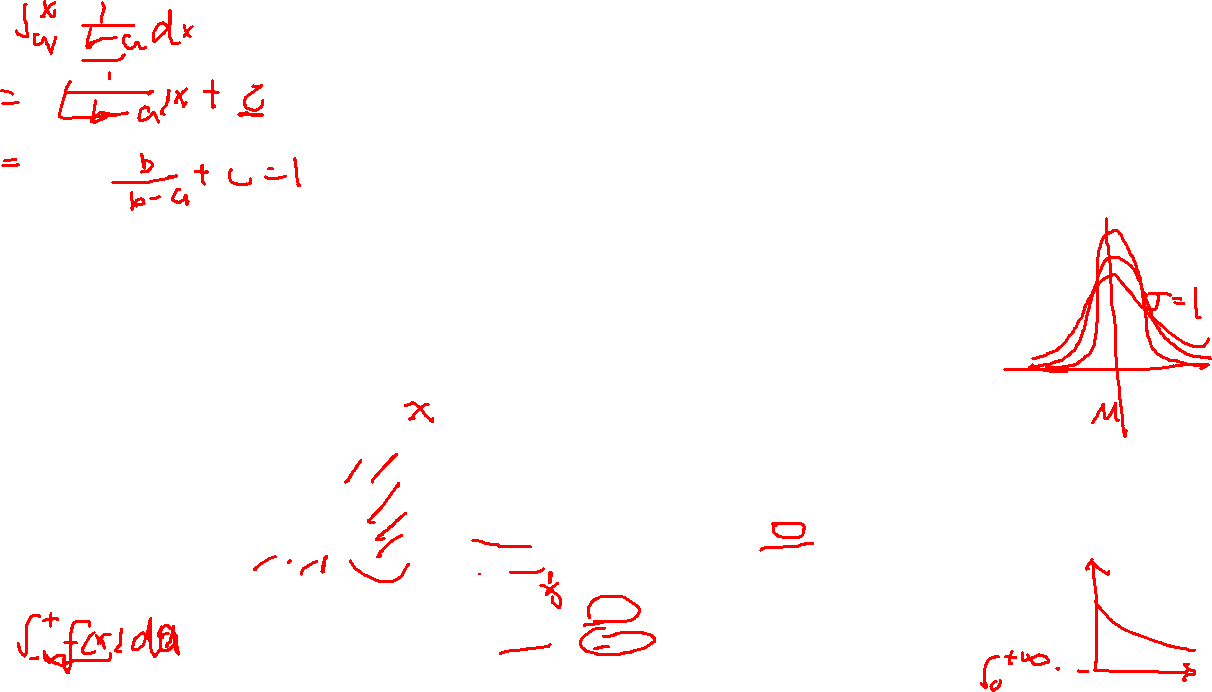 ∫ₐˣ 1/(b-a) dx
= 1/(b-a) x + c
= b/(b-a) + c = 1
σ=1
μ
x
∫₋∞⁺ f(x) d
∫₀⁺∞